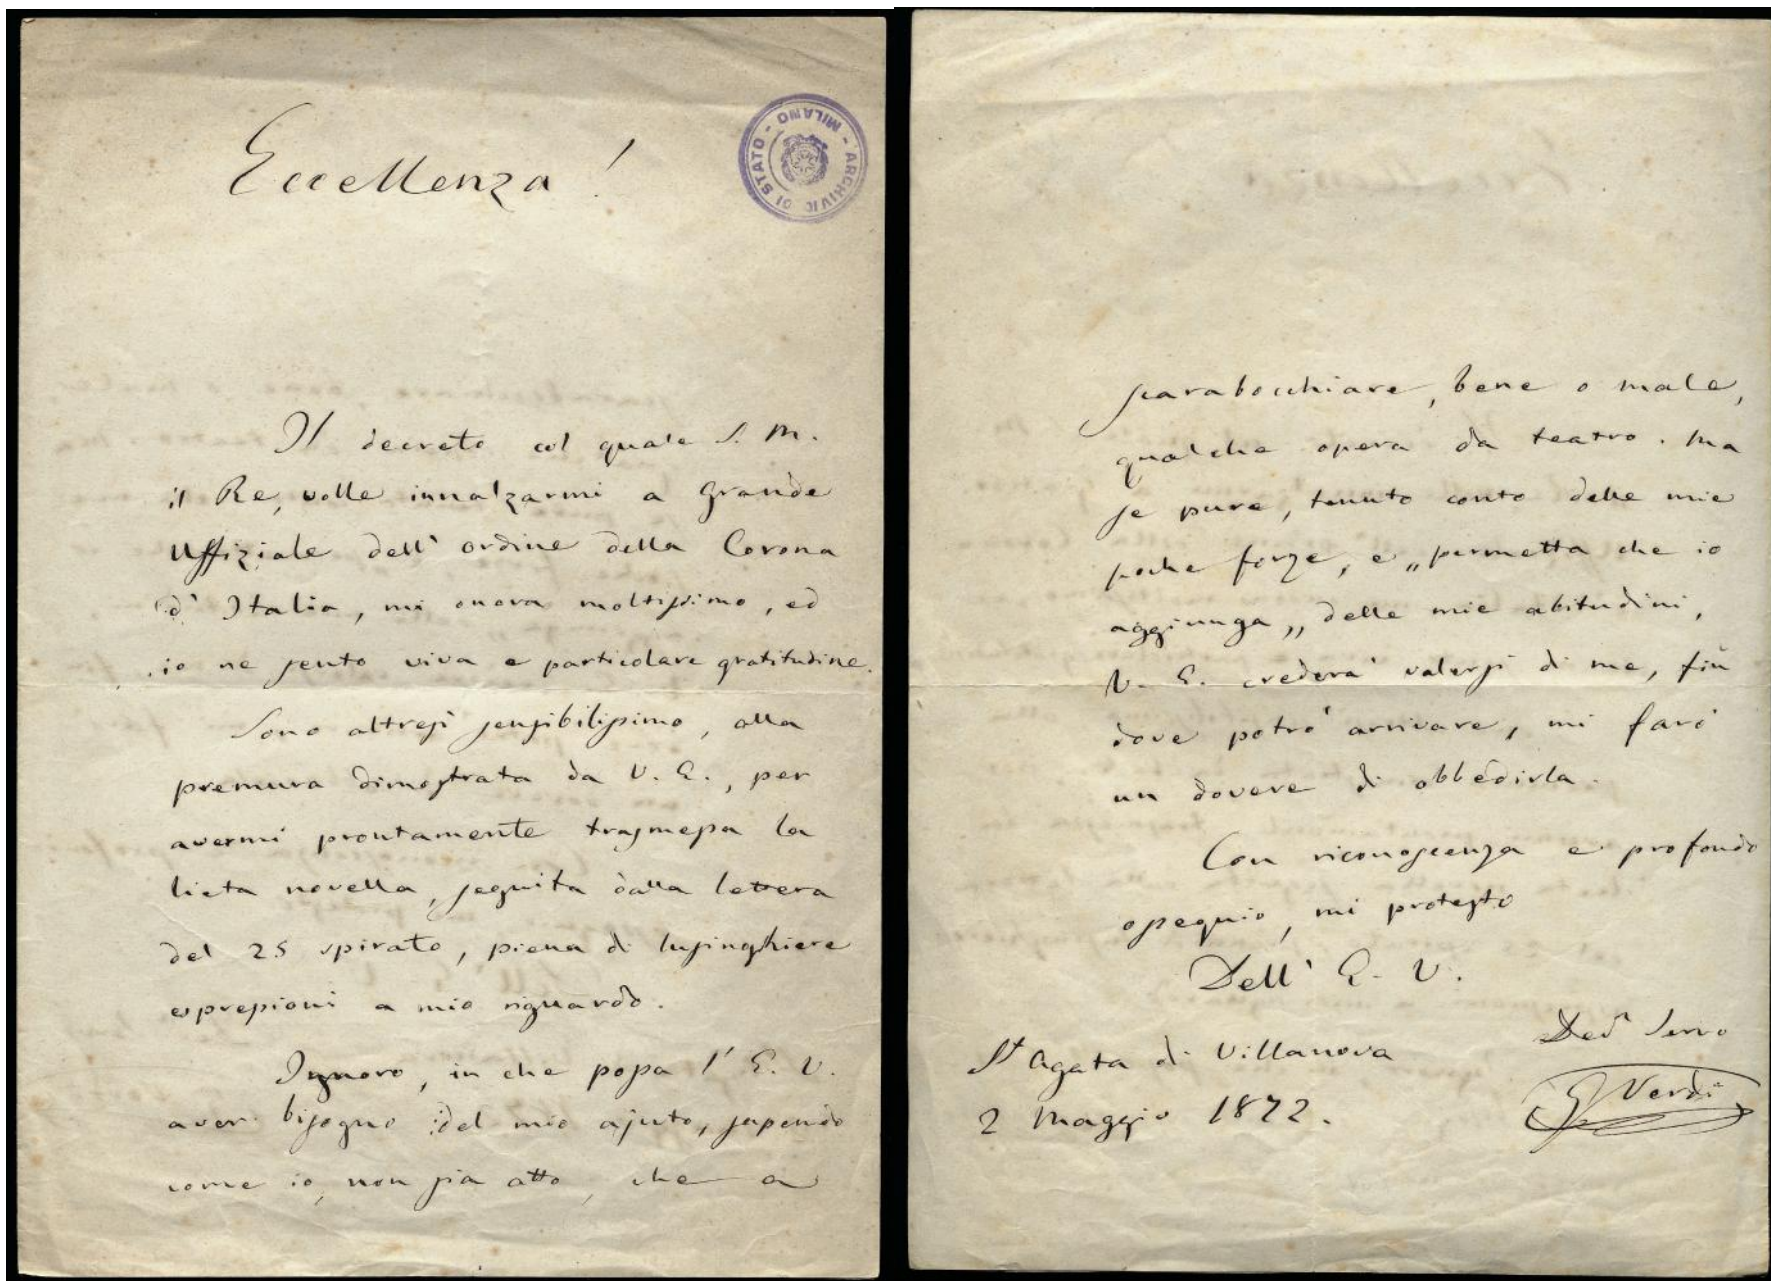 Eccellenza!
ARCHIVIO DI STATO - MILANO -
Il decreto col quale S. M.
il Re, volle innalzarmi a Grande
Uffiziale dell' ordine della Corona
d' Italia, mi onora moltissimo, ed
io ne sento viva e particolare gratitudine.
Sono altresì sensibilissimo, alla
premura dimostrata da V. E., per
avermi prontamente trasmessa la
lieta novella, seguita dalla lettera
del 25 spirato, piena di lusinghiere
espressioni a mio riguardo.
Ignoro, in che possa l' E. V.
aver bisogno del mio ajuto, sapendo
come io, non sia atto, che a
scarabocchiare, bene o male,
qualche opera da teatro. Ma
se pure, tenuto conto delle mie
poche forze, e „permetta che io
aggiunga„ delle mie abitudini,
V. E. crederà valersi di me, fin
dove potrò arrivare, mi farò
un dovere di obbedirla.
Con riconoscenza e profondo
ossequio, mi protesto
Dell' E. V.
Dev. Servo
G Verdi
St Agata di Villanova
2 Maggio 1872.